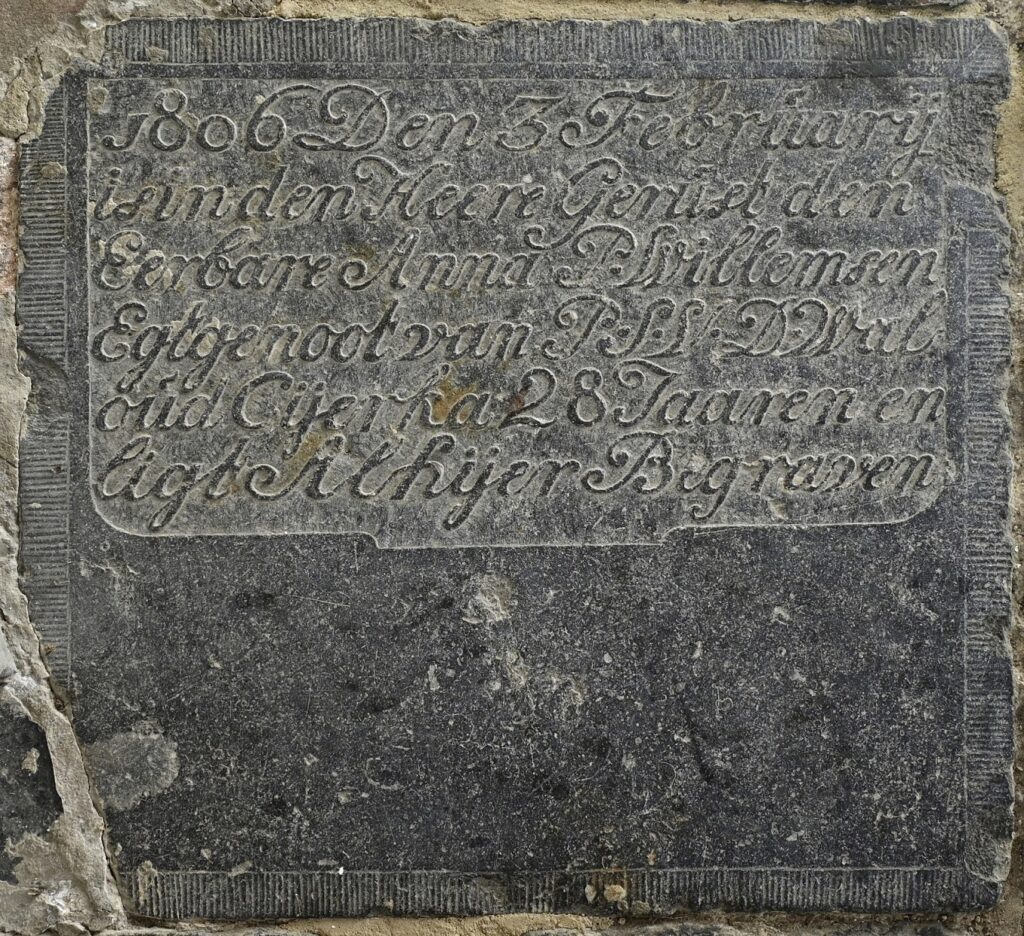 1806 Den 3 Februarij
is in den Heere Gerust den
Eerbare Anna P: Willemsen
Egtgenoot van P. S. V. D. Wal
oud Cijerka 28 Jaaren en
ligt Alhijer Begraven